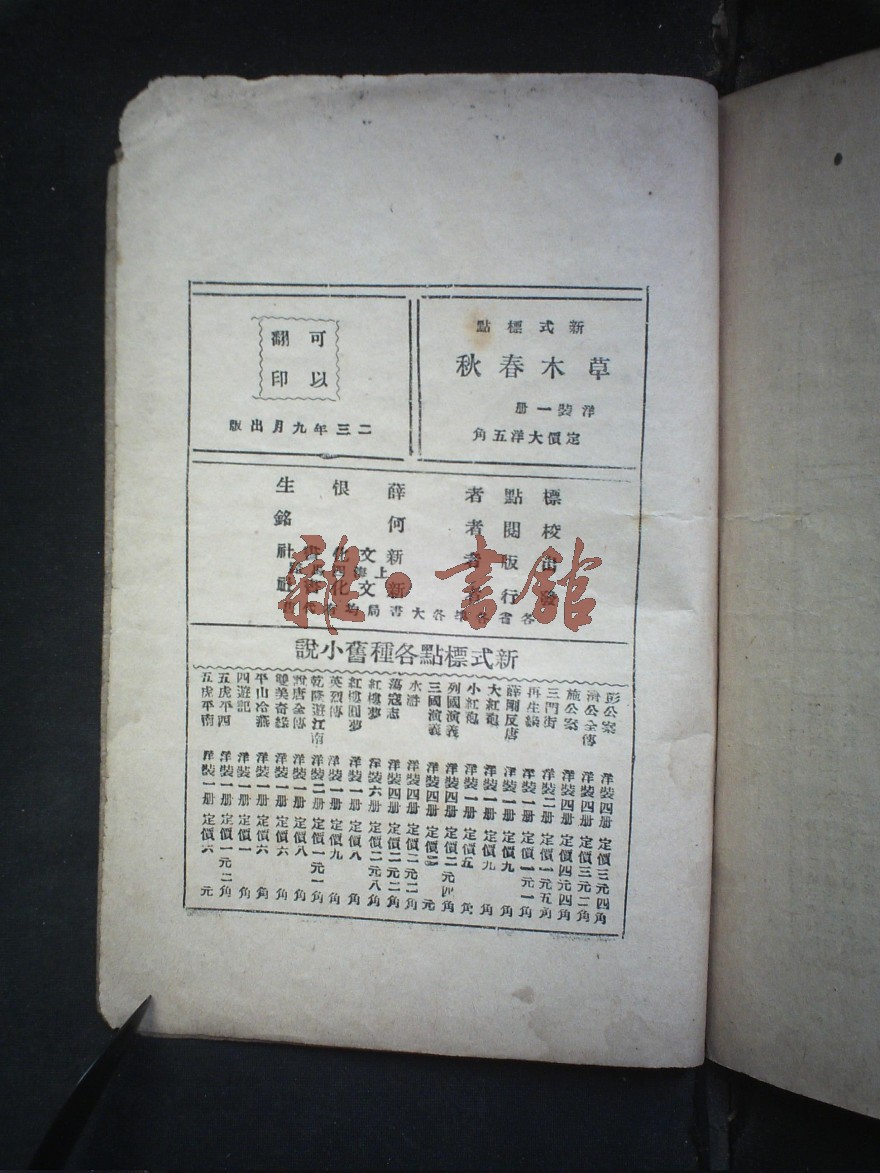 新式標點
草木春秋
洋裝一册
定價大洋五角
可以
翻印
二三年九月出版
標點者 薛恨生
校閱者 何銘
出版者 新文化書社
上海四
發行者 新文化書社
各省各埠各大書局均有代售
新式標點各種舊小說
彭公案 洋裝四册 定價三元四角
濟公全傳 洋裝四册 定價三元二角
施公案 洋裝四册 定價四元四角
三門街 洋裝二册 定價一元五角
再生緣 洋裝一册 定價一元一角
薛剛反唐 洋裝一册 定價九角
大紅袍 洋裝一册 定價九角
小紅袍 洋裝一册 定價五角
列國演義 洋裝四册 定價二元四角
三國演義 洋裝四册 定價 元
水滸 洋裝四册 定價二元二角
蕩寇志 洋裝四册 定價二元二角
紅樓夢 洋裝六册 定價二元八角
紅樓圓夢 洋裝一册 定價八角
英烈傳 洋裝一册 定價九角
乾隆遊江南 洋裝二册 定價一元一角
說唐全傳 洋裝一册 定價八角
雙美奇緣 洋裝一册 定價六角
平山冷燕 洋裝一册 定價六角
四遊記 洋裝一册 定價一 角
五虎平西 洋裝一册 定價一元二角
五虎平南 洋裝一册 定價六 元
雜·書館